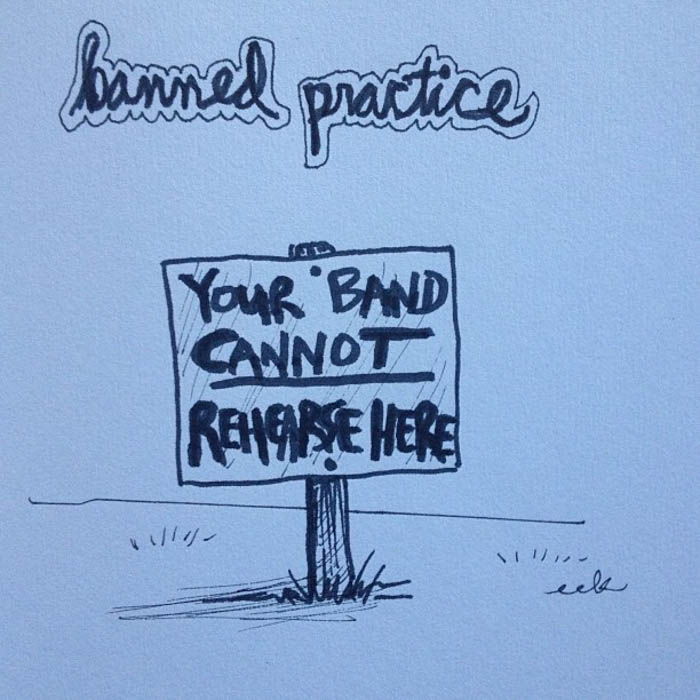 banned practice
YOUR BAND
CANNOT
REHEARSE HERE